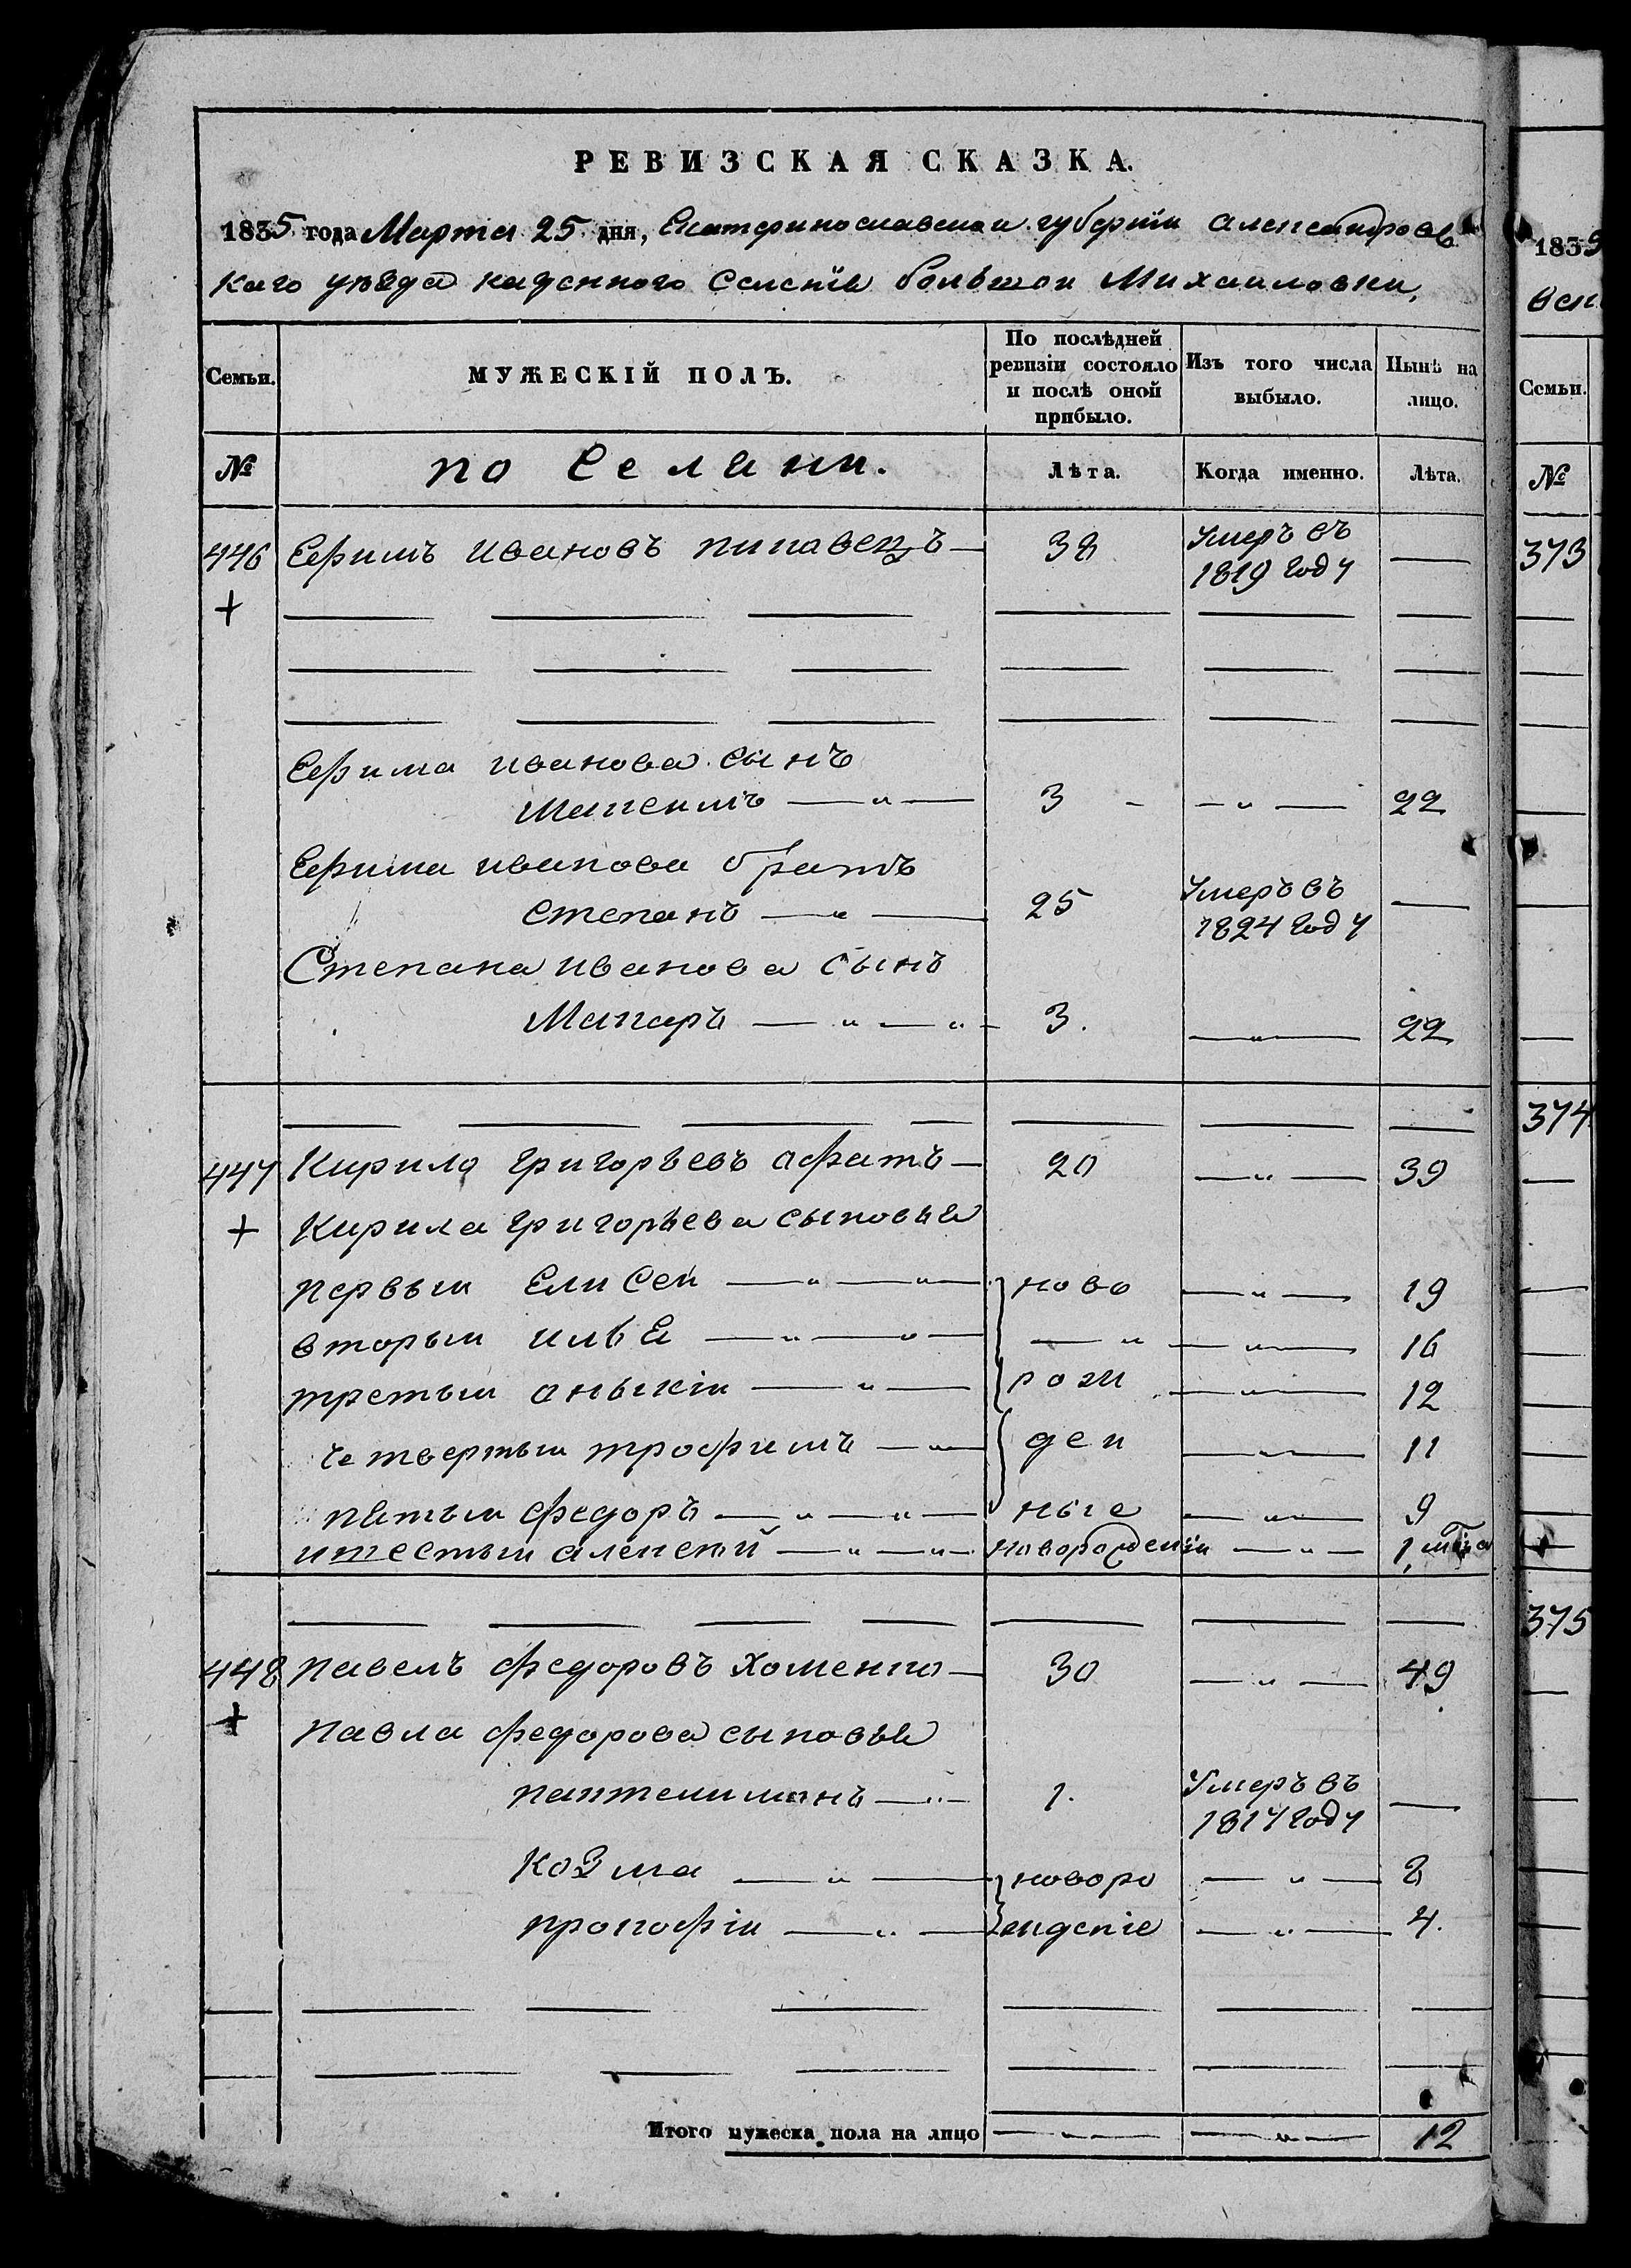 РЕВИЗСКАЯ СКАЗКА.
1835 года Марта 25 дня, Екатеринославской губернїи александровс
каго уѣзда казенного селенїя большой Михаиловки,
Семьи. МУЖЕСКІЙ ПОЛЪ. По послѣдней ревизіи состояло и послѣ оной прибыло. Изъ того числа выбыло. Нынѣ на лицо.
№ Лѣта. Когда именно. Лѣта.
446 Ефимъ ивановъ 38 Умеръ въ 1819 году —
+
Ефима иванова сынъ
Максимъ — „ — 3 - — „ — 22
Ефима иванова братъ
степанъ — „ — 25 Умеръ въ 1824 году —
Степана иванова сынъ
Макаръ — „ — „ — 3. — „ — 22
447 Кирило григорьевъ — 20 — „ — 39
+ Кирила григорьева сыновья
первыи Елисеи — „ — „ — ново — „ — 19
вторыи илья — „ — „ — — „ — „ — 16
третыи аныкіи — „ — рож — „ — 12
четвертыи трофимъ — „ — ден — „ — 11
пятыи федоръ — „ — „ — ные — „ — 9
шестыи алексѣй — „ — „ — — „ — 1
448 павелъ федоровъ хоменко — 30 — „ — 49
+ павла федорова сыновья
пантелимонъ — „ — 1. Умеръ въ 1817 году —
Козма — „ — новоро — „ — 8
прокофіи — „ — жденіе — „ — 4.
Итого мужеска пола на лицо — „ — — „ — 12
1835
Семьи.
№
373
374
375